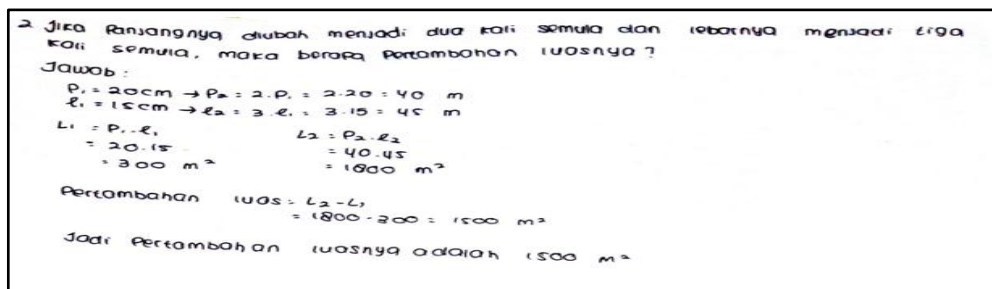 2 Jika Panjangnya diubah menjadi dua kali semula dan lebarnya menjadi tiga
kali semula, maka berapa Pertambahan luasnya?
Jawab:
P₁ = 20cm → P₂ = 2.P₁ = 2.20 = 40 m
l₁ = 15cm → l₂ = 3.l₁ = 3.15 = 45 m
L₁ = P₁.l₁ L₂ = P₂.l₂
= 20.15 = 40.45
= 300 m² = 1800 m²
Pertambahan luas = L₂-L₁
= 1800-300 = 1500 m²
Jadi Pertambahan luasnya adalah 1500 m²